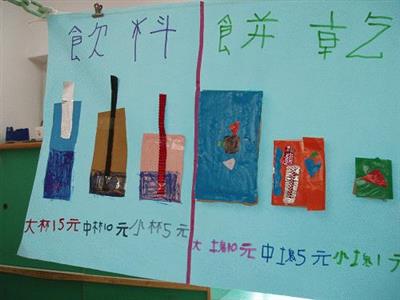 飲料
餅乾
大杯15元 中杯10元 小杯5元
大塊10元 中塊5元 小塊1元